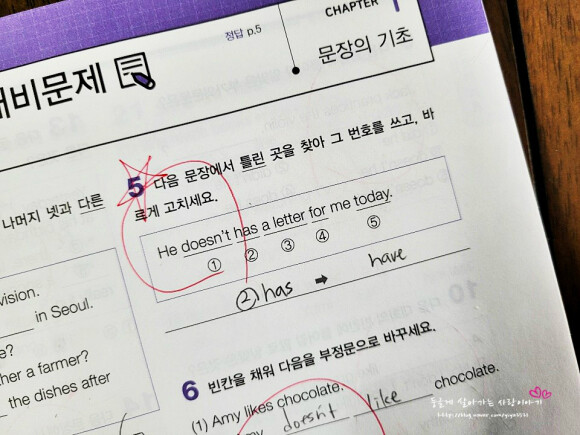 정답 p.5
CHAPTER 1
문장의 기초
비문제
나머지 넷과 다른
vision.
in Seoul.
e?
her a farmer?
the dishes after
5 다음 문장에서 틀린 곳을 찾아 그 번호를 쓰고, 바
르게 고치세요.
He doesn't has a letter for me today.
① ② ③ ④ ⑤
② has ➡ have
6 빈칸을 채워 다음을 부정문으로 바꾸세요.
(1) Amy likes chocolate.
my doesn't like chocolate.
둥글게 살아가는 사람이야기